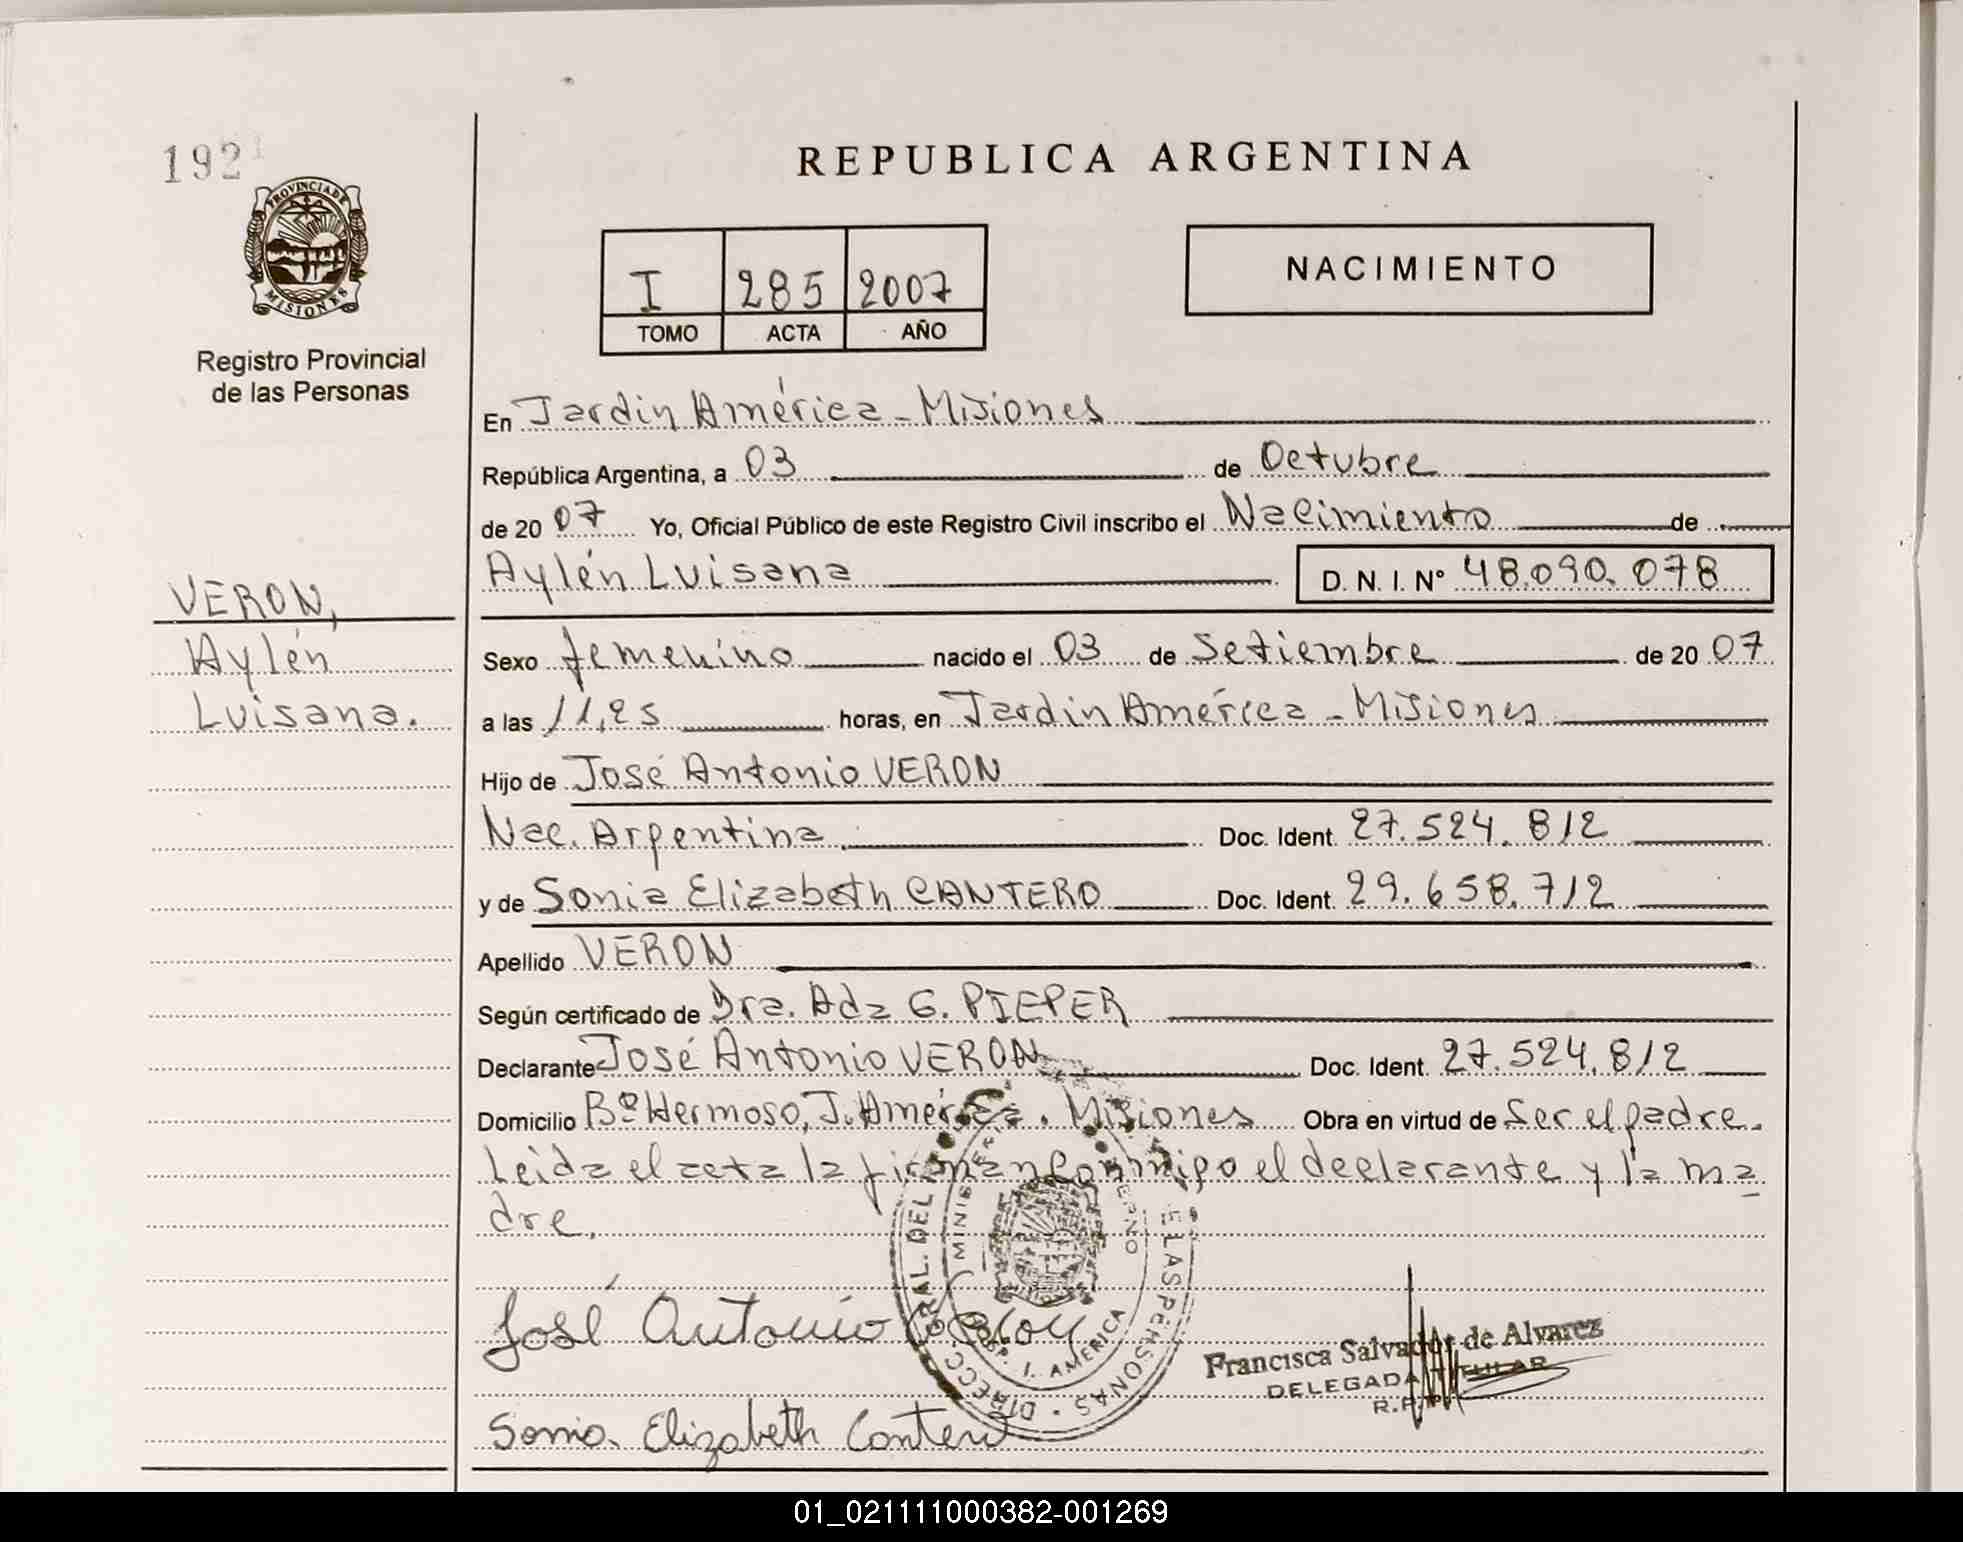 192
PROVINCIA DE
MISIONES
Registro Provincial
de las Personas
REPUBLICA ARGENTINA
I 285 2007
TOMO ACTA AÑO
NACIMIENTO
En Jardín América - Misiones
República Argentina, a 03 de Octubre
de 20 07 Yo, Oficial Público de este Registro Civil inscribo el Nacimiento de
Aylén Luisana D. N. I. Nº 48.090.078
VERON,
Aylén
Luisana.
Sexo femenino nacido el 03 de Setiembre de 20 07
a las 11,25 horas, en Jardín América - Misiones
Hijo de José Antonio VERON
Nac. Argentina Doc. Ident. 27.524.812
y de Sonia Elizabeth CANTERO Doc. Ident. 29.658.712
Apellido VERON
Según certificado de Dra. Ada G. PIEPER
Declarante José Antonio VERON Doc. Ident. 27.524.812
Domicilio Bº Hermoso, J. América. Misiones Obra en virtud de ser el padre.
Leida el acta la firman conmigo el declarante y la ma
dre.
José Antonio
Sonia Elizabeth Cantero
Francisca Salvador de Alvarez
DELEGADA TITULAR
R.P.P.
DIRECC. GRAL. DEL LAS PERSONAS
AMERICA
01_021111000382-001269